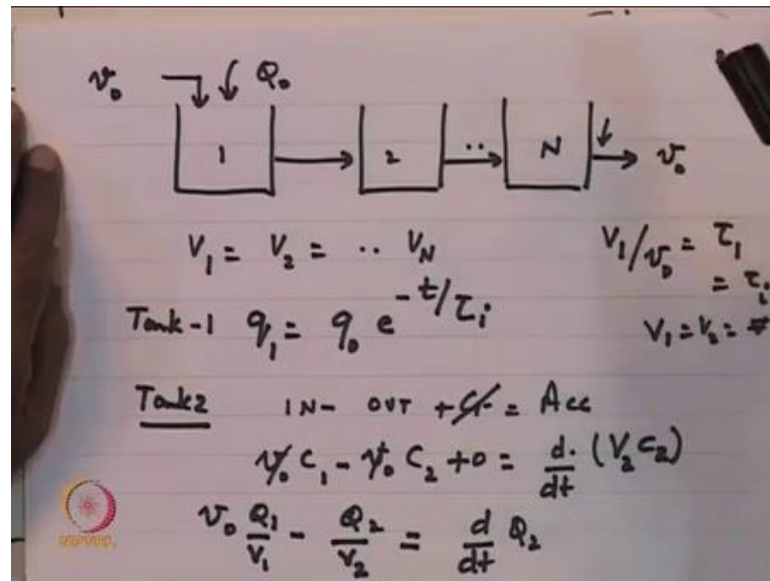 v₀ Q₀
1 2 .. N v₀
V₁ = V₂ = .. V_N V₁/v₀ = τ₁
= τᵢ
Tank-1 q₁ = q₀ e^(-t/τᵢ) V₁ = V₂ =
Tank2 IN - OUT + G = Acc
v₀ C₁ - v₀ C₂ + 0 = d/dt (V₂ C₂)
v₀ Q₁/V₁ - Q₂/V₂ = d/dt Q₂
NPTEL